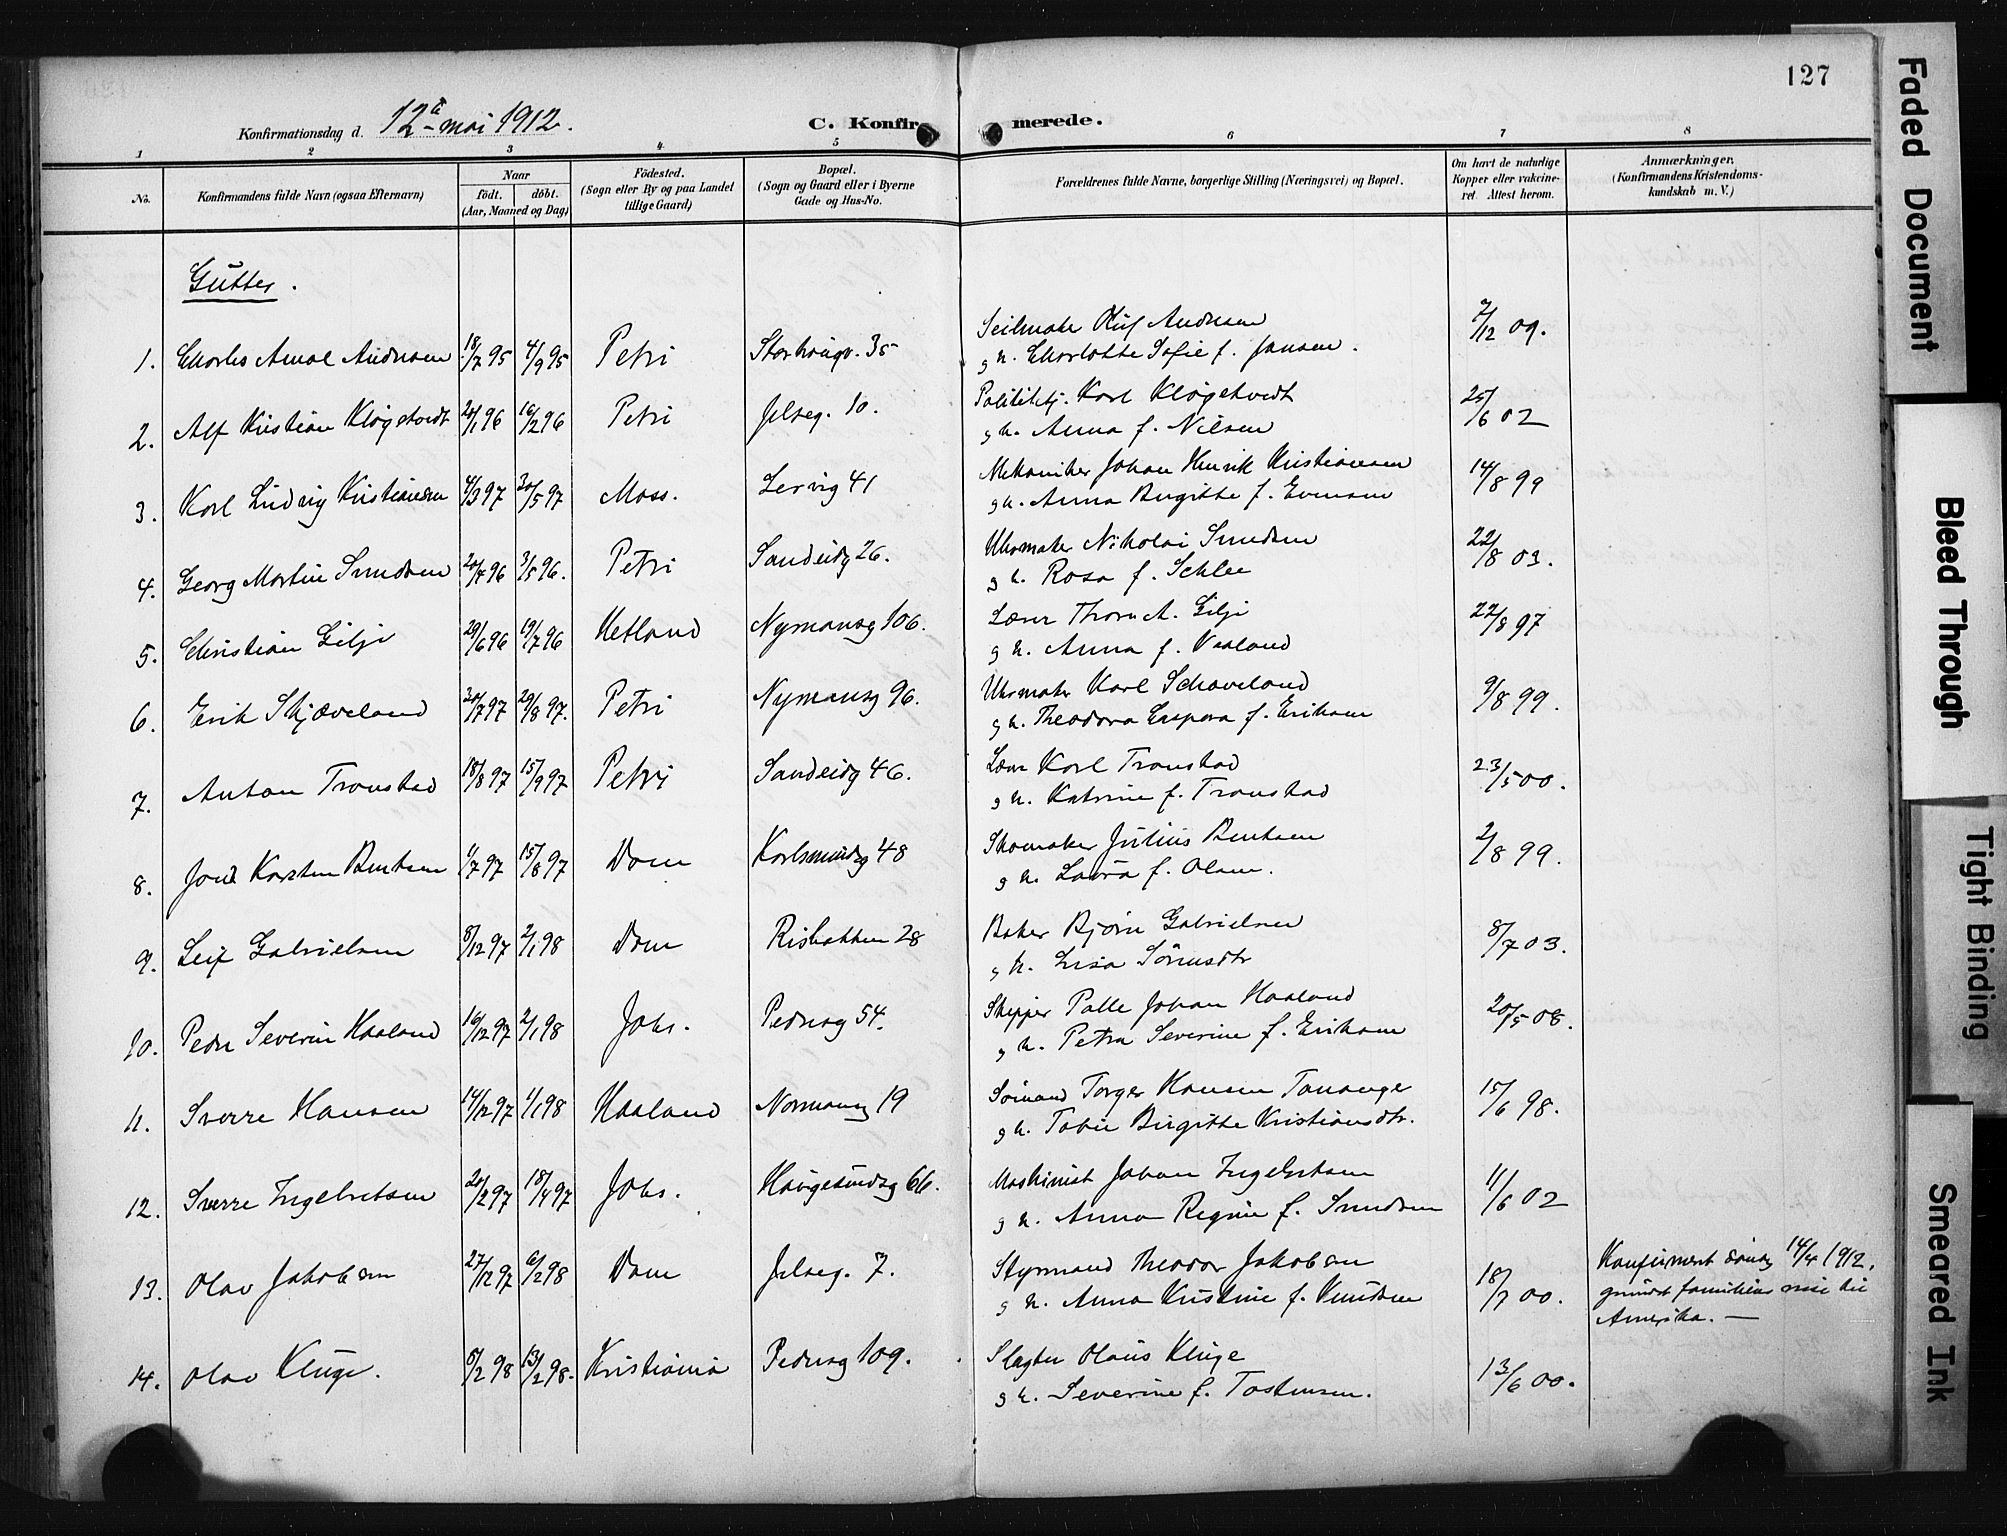 127
Konfirmationsdag d. 12te mai 1912.
C. Konfirmerede.
1 2 3 4 5 6 7 8
No.
Konfirmandens fulde Navn (ogsaa Efternavn)
Naar
født. døbt.
(Aar, Maaned og Dag)
Fødested.
(Sogn eller By og paa Landet
tillige Gaard)
Bopæl.
(Sogn og Gaard eller i Byerne
Gade og Hus-No.
Forældrenes fulde Navne, borgerlige Stilling (Næringsvei) og Bopæl.
Om havt de naturlige
Kopper eller vakcine-
ret. Attest herom.
Anmærkninger.
(Konfirmandens Kristendoms-
kundskab m. V.)
Gutter.
Seilmaker Oluf Andresen
1. Charles Amal Andresen 18/7 95 4/9 95 Petri Storhougv. 35 g h. Charlotte Sofie f. Jansen. 7/12 09.
Politibtj. Karl Kløgetvedt
2. Alf Kristian Kløgetvedt 20/1 96 16/2 96 Petri Jelseg. 10. g h. Anna f. Nilsen 25/6 02
Mekaniker Johan Henrik Kristiansen
3. Karl Ludvig Kristiansen 4/3 97 30/5 97 Moss. Lervig 41 g h. Anna Birgitte f. Evensen 14/8 99
Uhrmaker Nikolai Knudsen
4. Georg Martin Knudsen 20/4 96 3/5 96. Petri Sandeidg 26. g h. Rosa f. Schlee 22/8 03.
Lærer Thore A. Gilje
5. Christian Gilje 29/6 96 19/7 96 Hetland Nymansg 106. g h. Anna f. Vealand 22/8 97
Uhrmaker Karl Schæveland
6. Erik Skjæveland 30/7 97 29/8 97. Petri Nymansg 96. g h. Theodora Caspara f. Eriksen 9/8 99.
Lærer Karl Tronstad
7. Anton Tronstad 18/8 97 15/9 97 Petri Sandeidg 46. g h. Katrine f. Tronstad 23/5 00.
Skomaker Julius Bentsen
8. Karsten Bentsen 1/7 97 15/8 97 Dom Karlsmindeg 48 g h. Laura f. Olsen. 2/8 99.
Baker Bjørn Gabrielsen
9. Leif Gabrielsen 8/12 97 2/1 98 Dom Risbakken 28 g h. Lisa Sørensdtr 8/7 03.
Skipper Palle Johan Haaland
10. Peder Severin Haaland 16/12 97 2/1 98 Johs. Pedersg 54. g h. Petra Severine f. Eriksen 20/5 08.
Sømand Torger Hansen Tananger
11. Sverre Hansen 14/12 97 1/1 98 Haaland Normansg 19 g h. Tobie Birgitte Kristiansdtr. 15/6 98.
Maskinist Johan Ingebretsen
12. Sverre Ingebretsen 20/2 97 18/4 97 Johs. Haugesundsg 66. g h. Anna Regine f. Knudsen 11/6 02
Styrmand Theodor Jakobsen
13. Olav Jakobsen 27/12 97 6/2 98 Dom Jelseg. 7. g h. Anna Kristine f. Knudsen 18/7 00. Konfirmert søndag 14/4 1912,
grundet familiens reise til
Amerika. —
Slagter Olaus Kluge
14. Olav Kluge. 5/2 98 13/2 98. Kristiania Pedersg 109. g h. Severine f. Tostensen. 13/6 00.
Faded Document
Bleed Through
Tight Binding
Smeared Ink